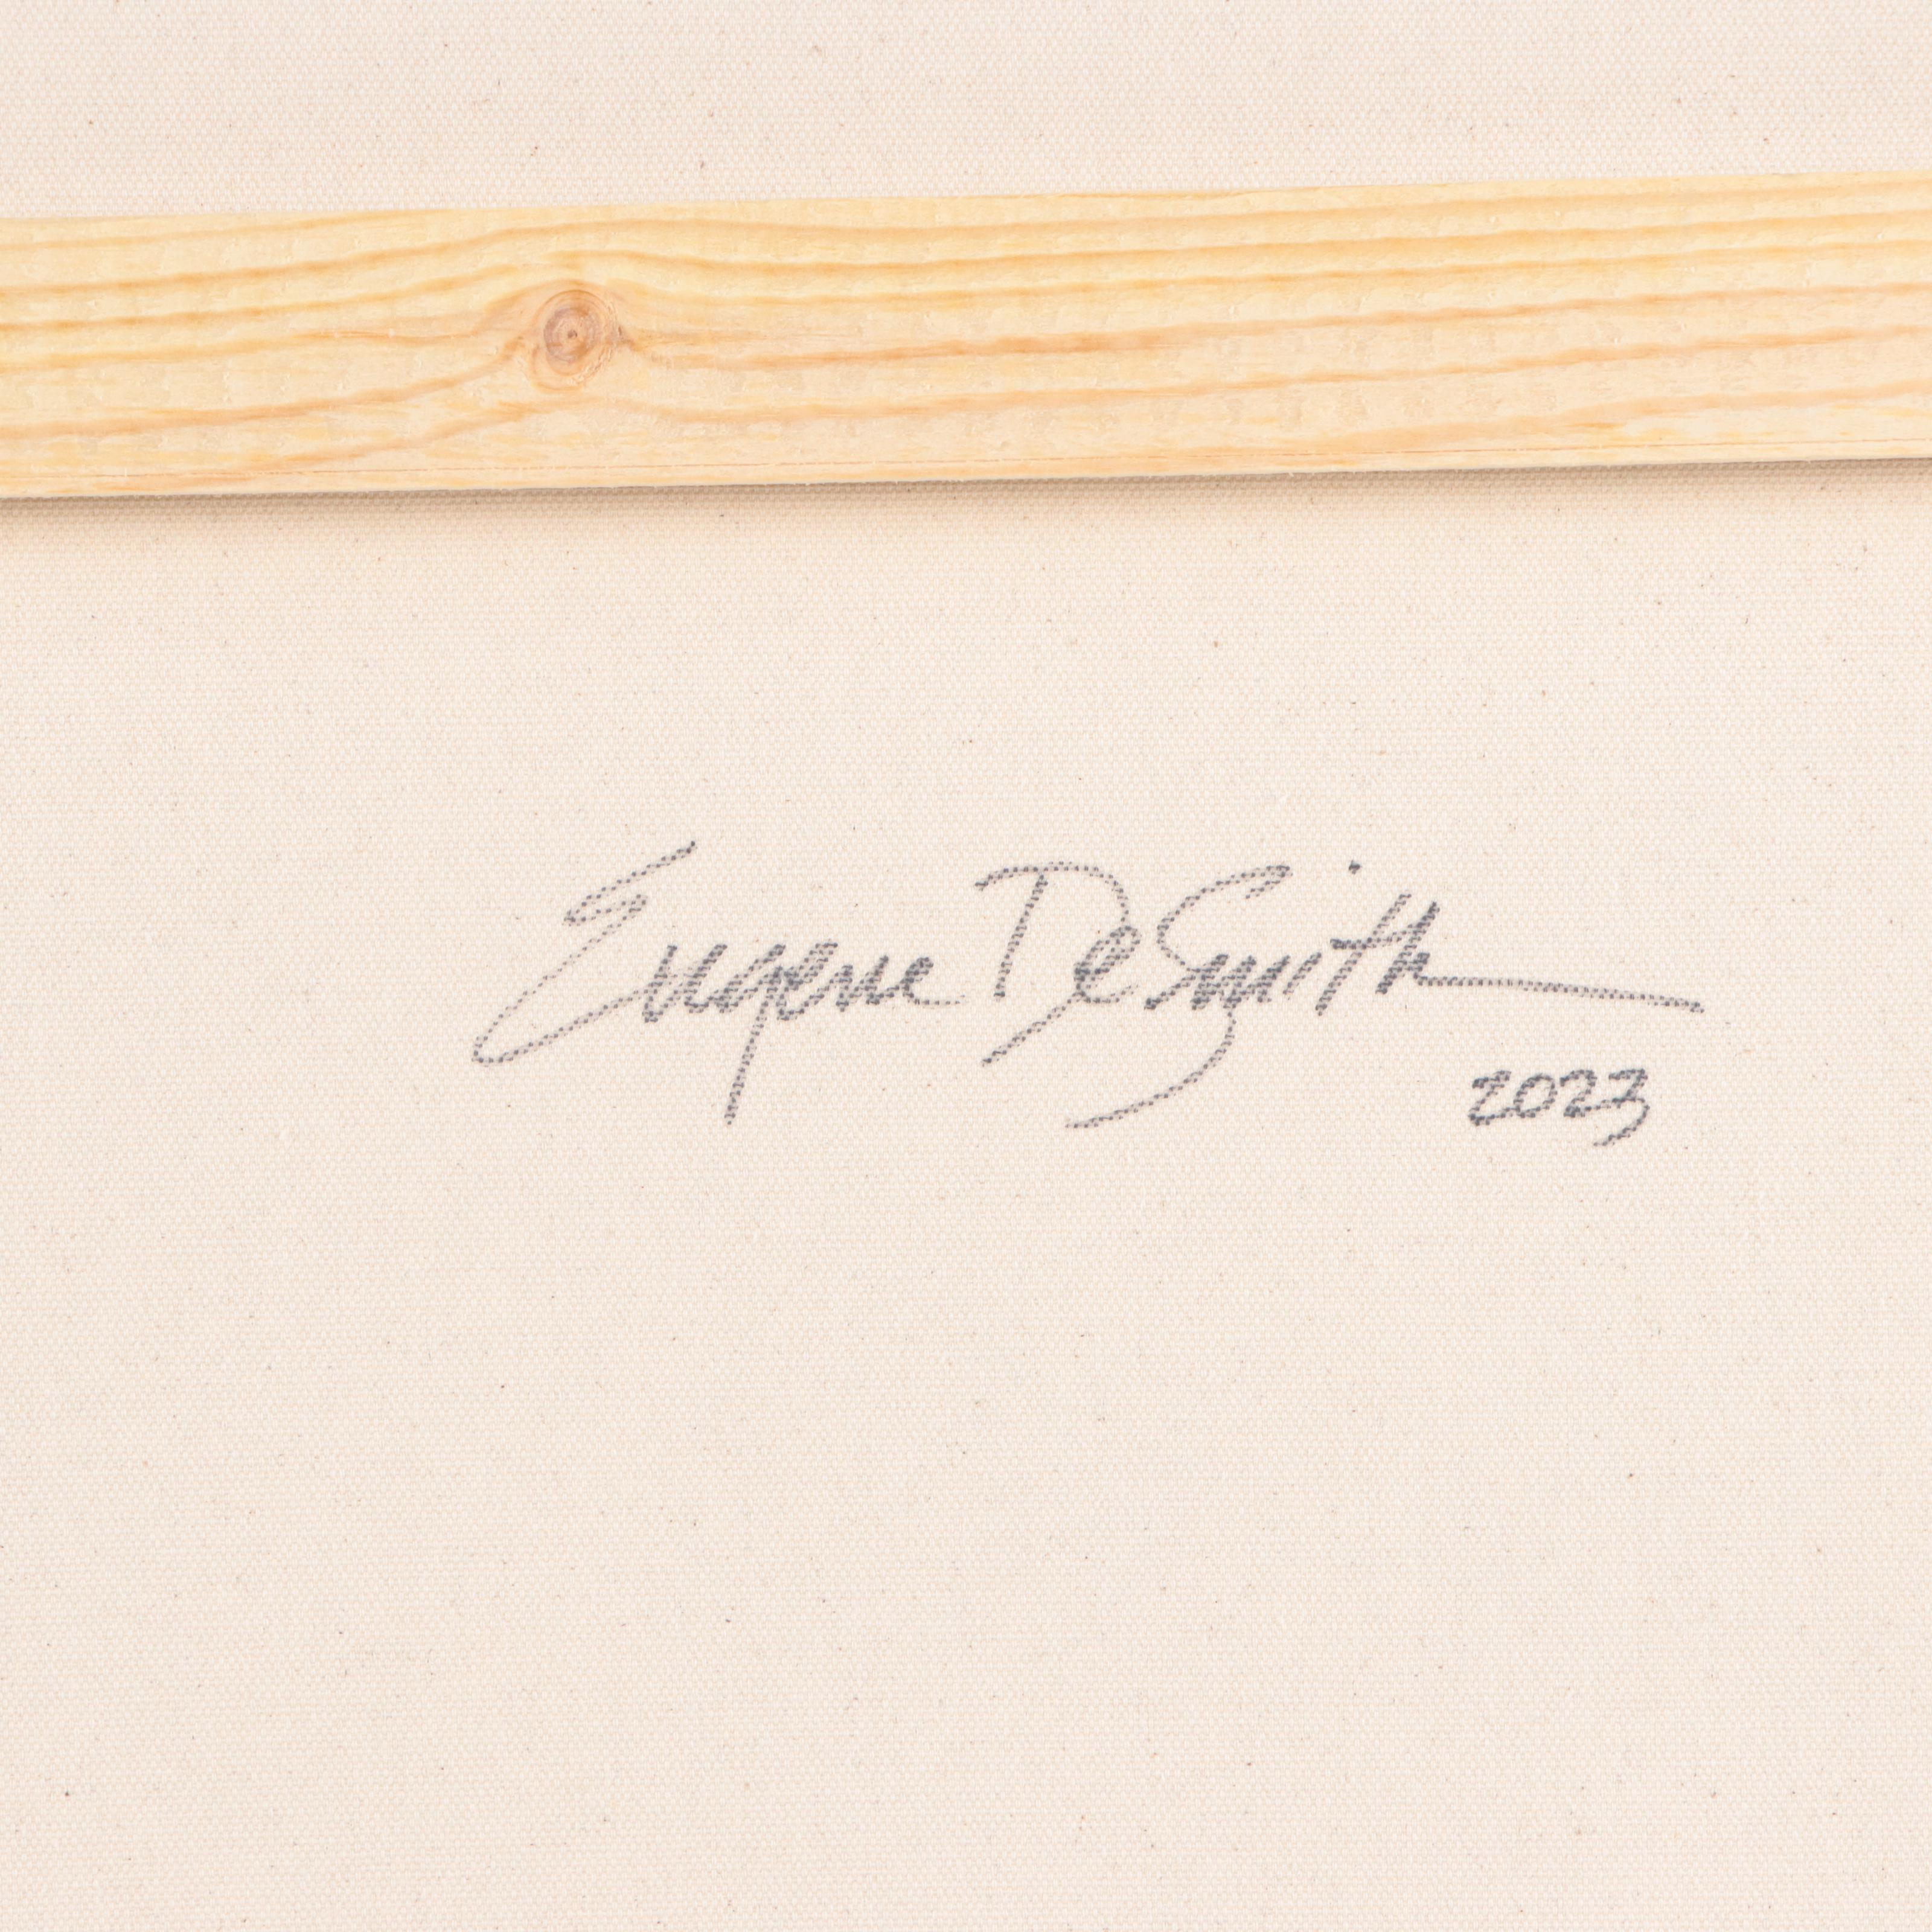 Eugene DeSmith
2023